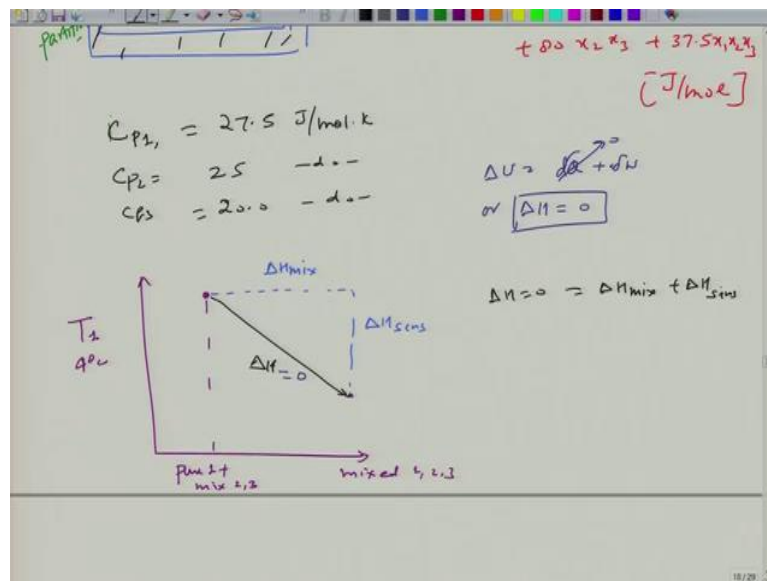 + 80 x₂x₃ + 37.5x₁x₂x₃
[J/mol]
Cp1, = 27.5 J/mol.K
Cp2 = 25 -do-
Cp3 = 20.0 -do-
ΔU = δQ + δW
0
or ΔH = 0
ΔH=0 = ΔHmix + ΔHsens
ΔHmix
ΔHsens
ΔH=0
T1
pure 1+
mix 2,3
mixed 1, 2, 3
18/29